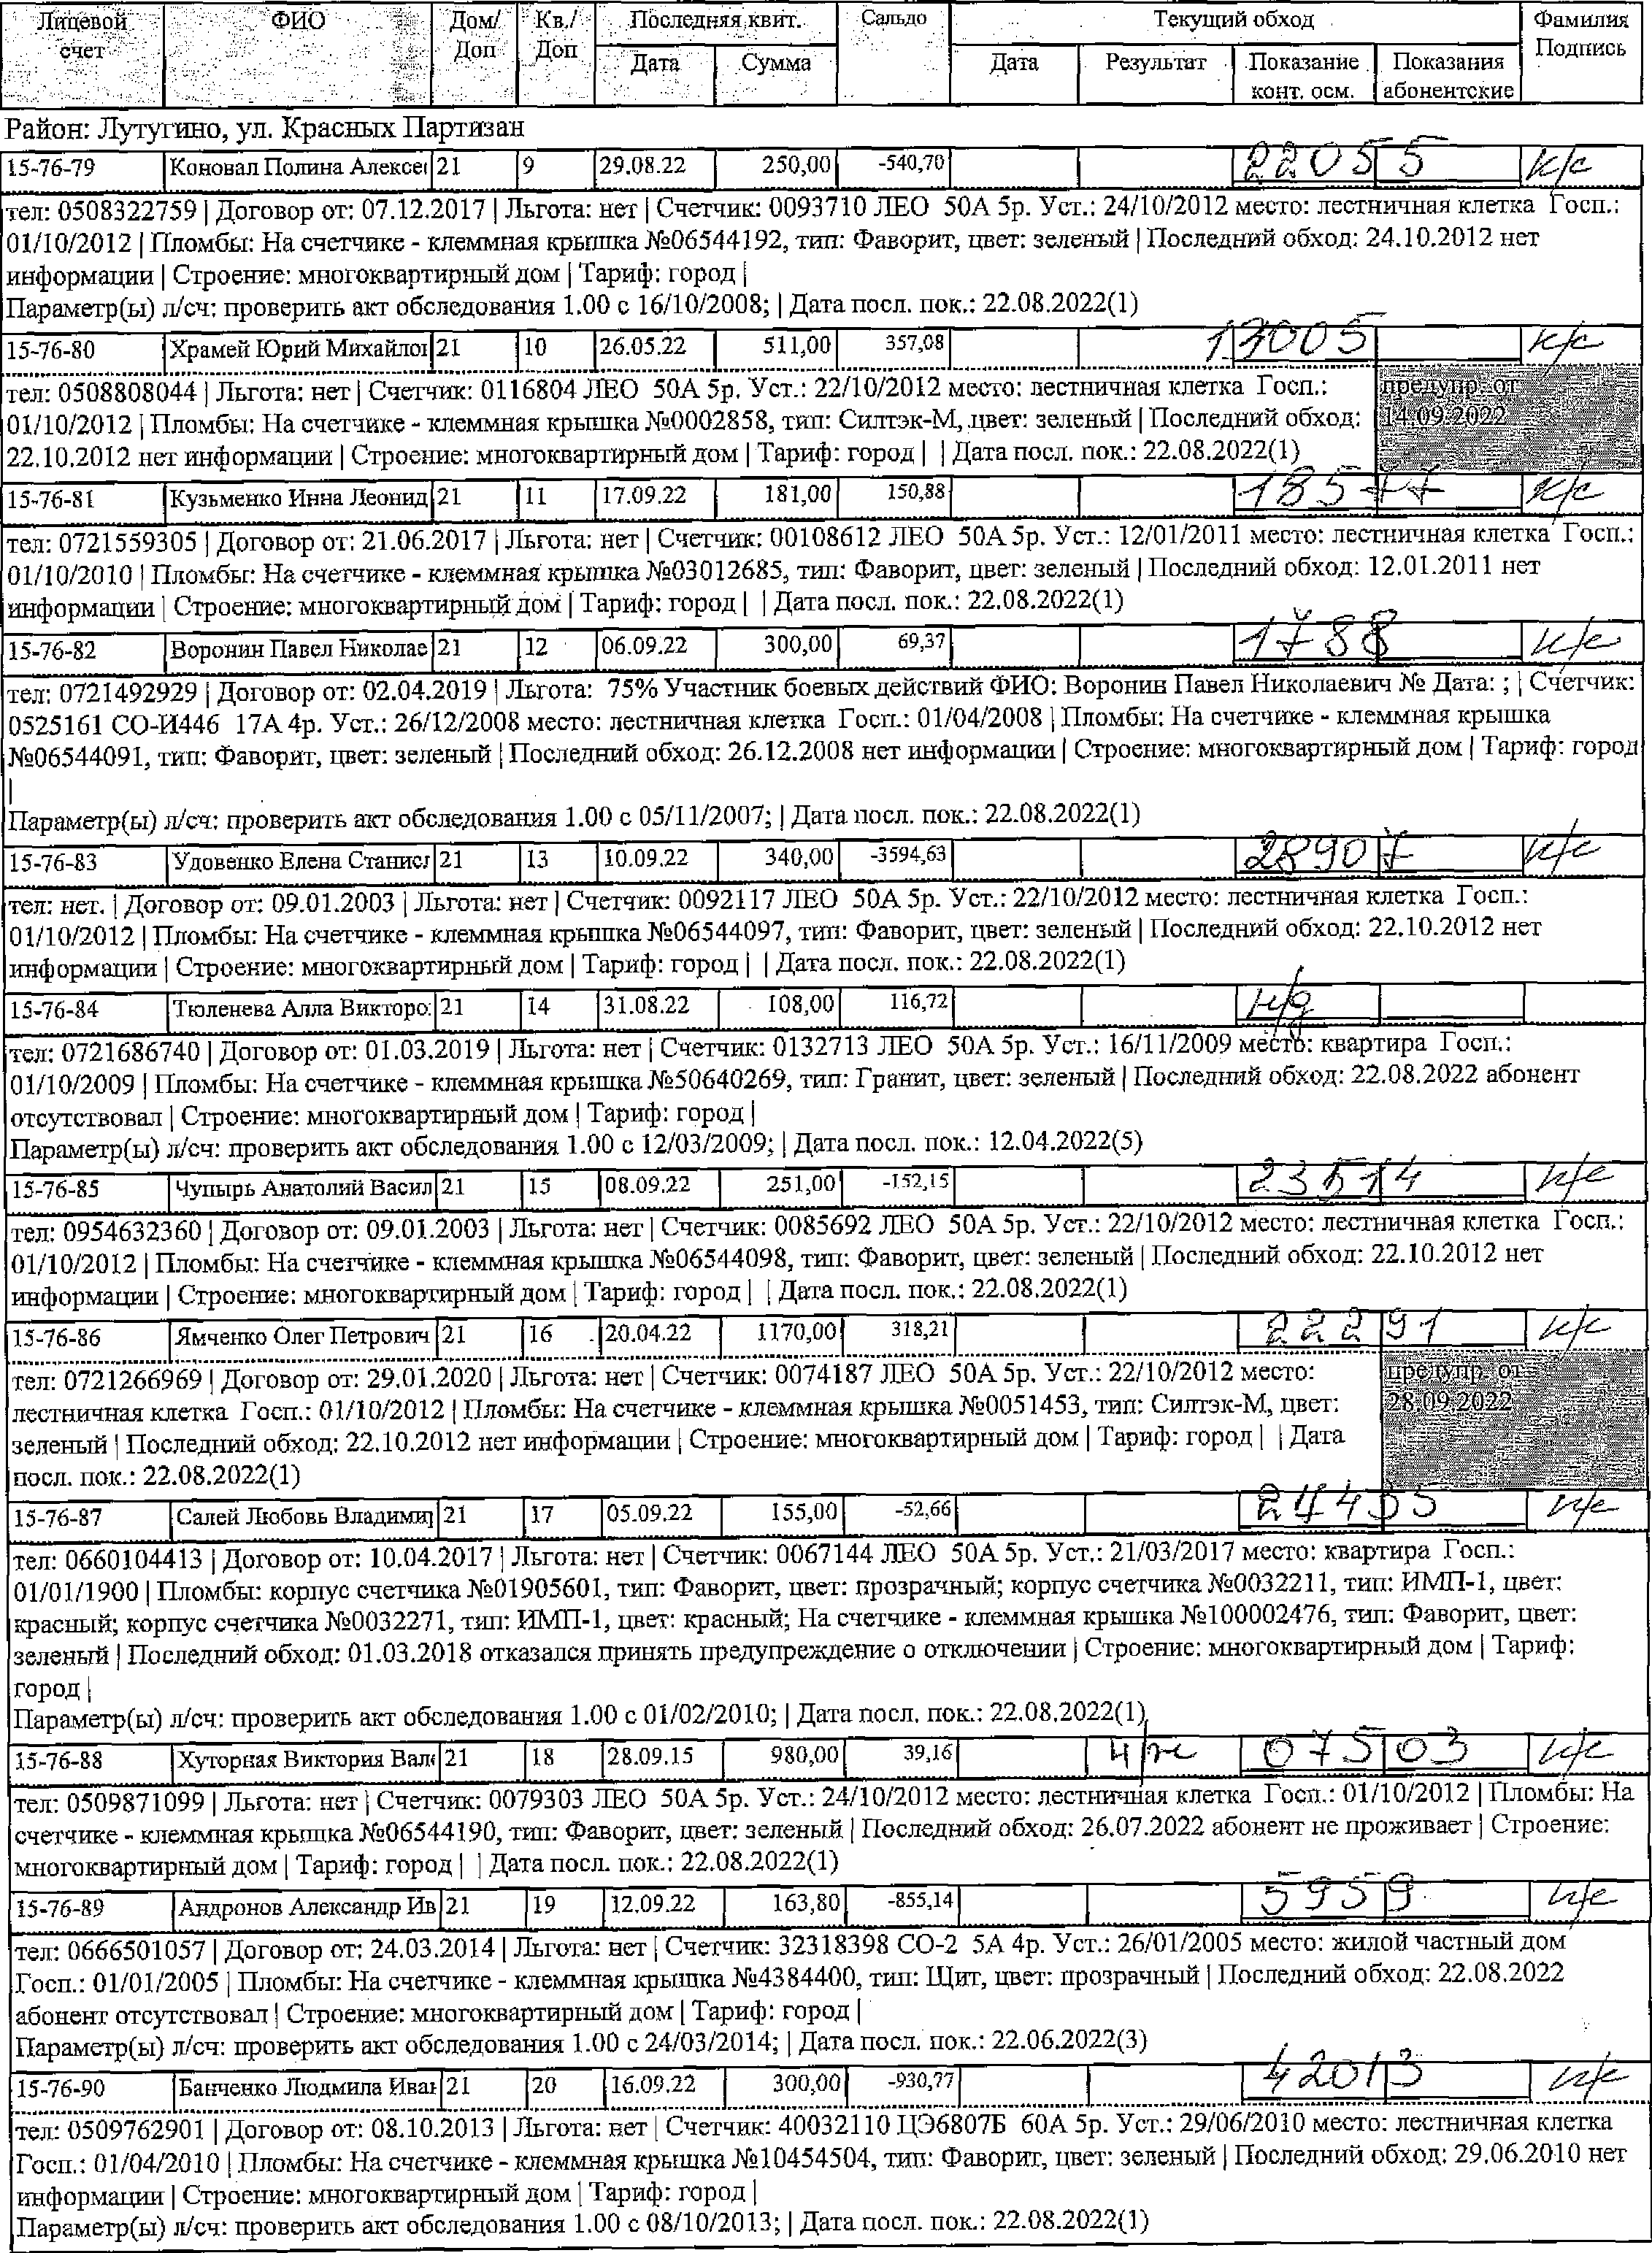 Лицевой счет ФИО Дом/Доп Кв./Доп Последняя квит. Сальдо Текущий обход Фамилия Подпись
Дата Сумма Дата Результат Показание конт. осм. Показания абонентские
Район: Лутугино, ул. Красных Партизан
15-76-79 Коновал Полина Алексе 21 9 29.08.22 250,00 -540,70 22055 к/с
тел: 0508322759 | Договор от: 07.12.2017 | Льгота: нет | Счетчик: 0093710 ЛЕО 50А 5р. Уст.: 24/10/2012 место: лестничная клетка Госп.:
01/10/2012 | Пломбы: На счетчике - клеммная крышка №06544192, тип: Фаворит, цвет: зеленый | Последний обход: 24.10.2012 нет
информации | Строение: многоквартирный дом | Тариф: город |
Параметр(ы) л/сч: проверить акт обследования 1.00 с 16/10/2008; | Дата посл. пок.: 22.08.2022(1)
15-76-80 Храмей Юрий Михайло 21 10 26.05.22 511,00 357,08 13005 к/с
тел: 0508808044 | Льгота: нет | Счетчик: 0116804 ЛЕО 50А 5р. Уст.: 22/10/2012 место: лестничная клетка Госп.: предупр. от
01/10/2012 | Пломбы: На счетчике - клеммная крышка №0002858, тип: Силтэк-М, цвет: зеленый | Последний обход: 14.09.2022
22.10.2012 нет информации | Строение: многоквартирный дом | Тариф: город | | Дата посл. пок.: 22.08.2022(1)
15-76-81 Кузьменко Инна Леонид 21 11 17.09.22 181,00 150,88 18577 к/с
тел: 0721559305 | Договор от: 21.06.2017 | Льгота: нет | Счетчик: 00108612 ЛЕО 50А 5р. Уст.: 12/01/2011 место: лестничная клетка Госп.:
01/10/2010 | Пломбы: На счетчике - клеммная крышка №03012685, тип: Фаворит, цвет: зеленый | Последний обход: 12.01.2011 нет
информации | Строение: многоквартирный дом | Тариф: город | | Дата посл. пок.: 22.08.2022(1)
15-76-82 Воронин Павел Николае 21 12 06.09.22 300,00 69,37 1788 к/с
тел: 0721492929 | Договор от: 02.04.2019 | Льгота: 75% Участник боевых действий ФИО: Воронин Павел Николаевич № Дата: ; | Счетчик:
0525161 СО-И446 17А 4р. Уст.: 26/12/2008 место: лестничная клетка Госп.: 01/04/2008 | Пломбы: На счетчике - клеммная крышка
№06544091, тип: Фаворит, цвет: зеленый | Последний обход: 26.12.2008 нет информации | Строение: многоквартирный дом | Тариф: город
|
Параметр(ы) л/сч: проверить акт обследования 1.00 с 05/11/2007; | Дата посл. пок.: 22.08.2022(1)
15-76-83 Удовенко Елена Станисл 21 13 10.09.22 340,00 -3594,63 28907 к/с
тел: нет. | Договор от: 09.01.2003 | Льгота: нет | Счетчик: 0092117 ЛЕО 50А 5р. Уст.: 22/10/2012 место: лестничная клетка Госп.:
01/10/2012 | Пломбы: На счетчике - клеммная крышка №06544097, тип: Фаворит, цвет: зеленый | Последний обход: 22.10.2012 нет
информации | Строение: многоквартирный дом | Тариф: город | | Дата посл. пок.: 22.08.2022(1)
15-76-84 Тюленева Алла Викторо 21 14 31.08.22 108,00 116,72 н/д
тел: 0721686740 | Договор от: 01.03.2019 | Льгота: нет | Счетчик: 0132713 ЛЕО 50А 5р. Уст.: 16/11/2009 место: квартира Госп.:
01/10/2009 | Пломбы: На счетчике - клеммная крышка №50640269, тип: Гранит, цвет: зеленый | Последний обход: 22.08.2022 абонент
отсутствовал | Строение: многоквартирный дом | Тариф: город |
Параметр(ы) л/сч: проверить акт обследования 1.00 с 12/03/2009; | Дата посл. пок.: 12.04.2022(5)
15-76-85 Чупырь Анатолий Васил 21 15 08.09.22 251,00 -152,15 23514 к/с
тел: 0954632360 | Договор от: 09.01.2003 | Льгота: нет | Счетчик: 0085692 ЛЕО 50А 5р. Уст.: 22/10/2012 место: лестничная клетка Госп.:
01/10/2012 | Пломбы: На счетчике - клеммная крышка №06544098, тип: Фаворит, цвет: зеленый | Последний обход: 22.10.2012 нет
информации | Строение: многоквартирный дом | Тариф: город | | Дата посл. пок.: 22.08.2022(1)
15-76-86 Ямченко Олег Петрович 21 16 20.04.22 1170,00 318,21 22291 к/с
тел: 0721266969 | Договор от: 29.01.2020 | Льгота: нет | Счетчик: 0074187 ЛЕО 50А 5р. Уст.: 22/10/2012 место: предупр. от
лестничная клетка Госп.: 01/10/2012 | Пломбы: На счетчике - клеммная крышка №0051453, тип: Силтэк-М, цвет: 28.09.2022
зеленый | Последний обход: 22.10.2012 нет информации | Строение: многоквартирный дом | Тариф: город | | Дата
посл. пок.: 22.08.2022(1)
15-76-87 Салей Любовь Владимир 21 17 05.09.22 155,00 -52,66 24435 к/с
тел: 0660104413 | Договор от: 10.04.2017 | Льгота: нет | Счетчик: 0067144 ЛЕО 50А 5р. Уст.: 21/03/2017 место: квартира Госп.:
01/01/1900 | Пломбы: корпус счетчика №01905601, тип: Фаворит, цвет: прозрачный; корпус счетчика №0032211, тип: ИМП-1, цвет:
красный; корпус счетчика №0032271, тип: ИМП-1, цвет: красный; На счетчике - клеммная крышка №100002476, тип: Фаворит, цвет:
зеленый | Последний обход: 01.03.2018 отказался принять предупреждение о отключении | Строение: многоквартирный дом | Тариф:
город |
Параметр(ы) л/сч: проверить акт обследования 1.00 с 01/02/2010; | Дата посл. пок.: 22.08.2022(1)
15-76-88 Хуторная Виктория Вал 21 18 28.09.15 980,00 39,16 07503 к/с
тел: 0509871099 | Льгота: нет | Счетчик: 0079303 ЛЕО 50А 5р. Уст.: 24/10/2012 место: лестничная клетка Госп.: 01/10/2012 | Пломбы: На
счетчике - клеммная крышка №06544190, тип: Фаворит, цвет: зеленый | Последний обход: 26.07.2022 абонент не проживает | Строение:
многоквартирный дом | Тариф: город | | Дата посл. пок.: 22.08.2022(1)
15-76-89 Андронов Александр Ив 21 19 12.09.22 163,80 -855,14 5959 к/с
тел: 0666501057 | Договор от: 24.03.2014 | Льгота: нет | Счетчик: 32318398 СО-2 5А 4р. Уст.: 26/01/2005 место: жилой частный дом
Госп.: 01/01/2005 | Пломбы: На счетчике - клеммная крышка №4384400, тип: Щит, цвет: прозрачный | Последний обход: 22.08.2022
абонент отсутствовал | Строение: многоквартирный дом | Тариф: город |
Параметр(ы) л/сч: проверить акт обследования 1.00 с 24/03/2014; | Дата посл. пок.: 22.06.2022(3)
15-76-90 Банченко Людмила Иван 21 20 16.09.22 300,00 -930,77 42013 к/с
тел: 0509762901 | Договор от: 08.10.2013 | Льгота: нет | Счетчик: 40032110 ЦЭ6807Б 60А 5р. Уст.: 29/06/2010 место: лестничная клетка
Госп.: 01/04/2010 | Пломбы: На счетчике - клеммная крышка №10454504, тип: Фаворит, цвет: зеленый | Последний обход: 29.06.2010 нет
информации | Строение: многоквартирный дом | Тариф: город |
Параметр(ы) л/сч: проверить акт обследования 1.00 с 08/10/2013; | Дата посл. пок.: 22.08.2022(1)